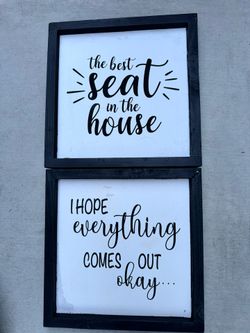 the best
seat
in the
house
I HOPE
everything
COMES OUT
okay...